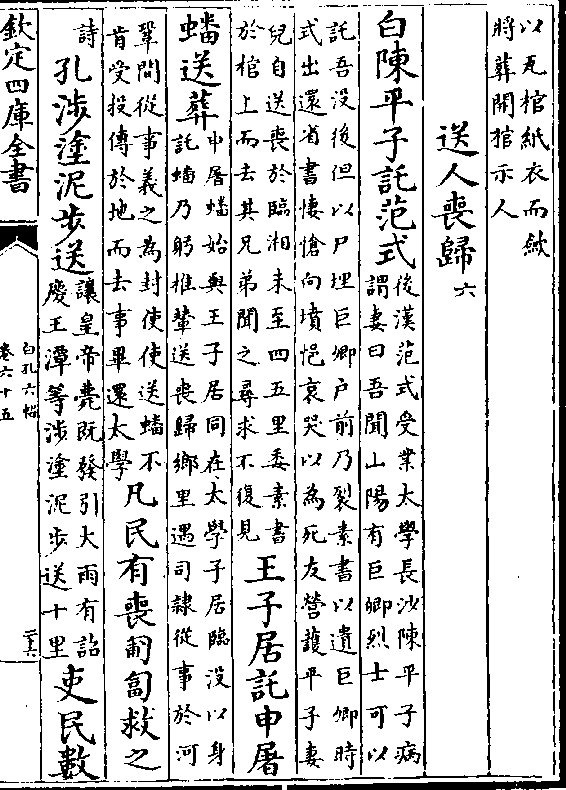 以瓦棺紙衣而斂
將葬開棺示人
送人喪歸六
白陳平子託范式後漢范式受業太學長沙陳平子病
謂妻曰吾聞山陽有巨卿烈士可以
託吾沒後但以尸埋巨卿户前乃裂素書以遺巨卿時
式出還省書悽愴向墳悒哀哭以為死友營䕶平子妻
兒自送喪於臨湘未至四五里委素書
於棺上而去其兄弟聞之尋求不復見
王子居託申屠
蟠送葬申屠蟠始與王子居同在太學子居臨沒以身
託蟠乃躬推輦送喪歸鄉里遇司隷從事於河
鞏間從事義之為封使使送蟠不
肯受投傳於地而去事畢還太學
凡民有喪匍匐救之
詩孔涉塗泥步送讓皇帝薨既發引大雨有詔
慶王潭等涉塗泥步送十里
吏民數
欽定四庫全書
白孔六帖
卷六十五
二十六